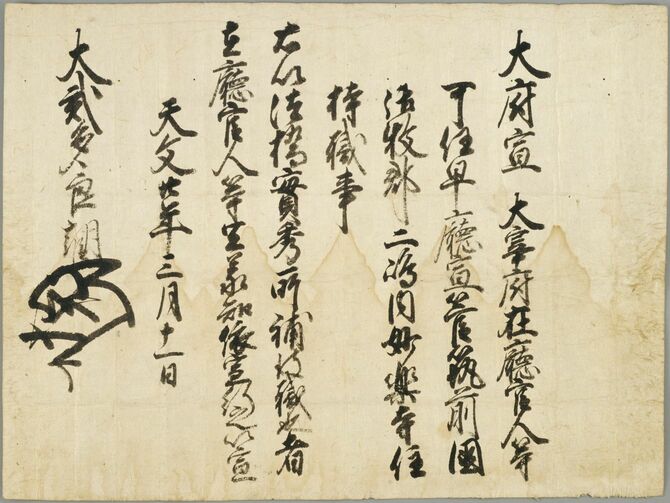 大府宣　大宰府在廳官人等
可任早廳宣管筑前國
席牧郡二嶋内妙樂寺住
持職事
右以法橋實秀所補彼職也者
在廳官人等宜承知依宣行之以宣
天文廿年三月十一日
大貳多々良朝臣